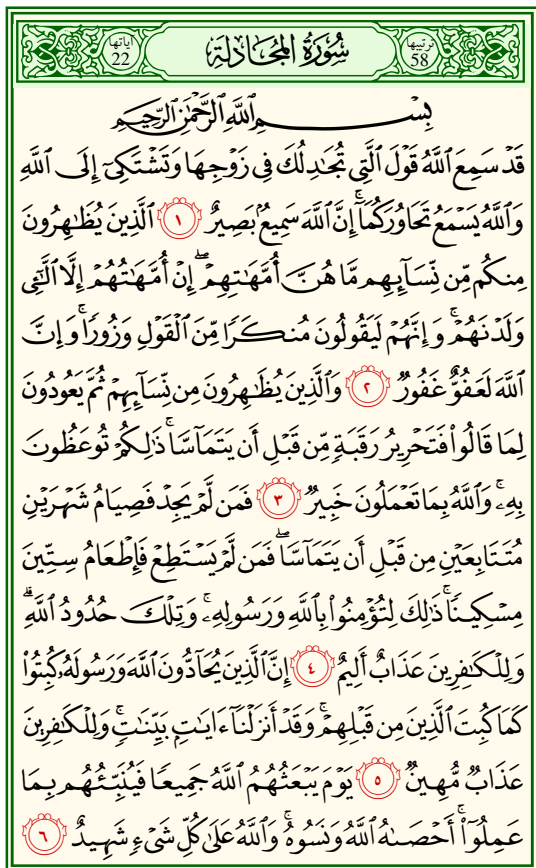 ترتيبها 58 سُورَةُ المُجَادلَةِ آياتها 22
بِسْمِ ٱللَّهِ ٱلرَّحْمَٰنِ ٱلرَّحِيمِ
قَدْ سَمِعَ ٱللَّهُ قَوْلَ ٱلَّتِي تُجَٰدِلُكَ فِي زَوْجِهَا وَتَشْتَكِيٓ إِلَى ٱللَّهِ
وَٱللَّهُ يَسْمَعُ تَحَاوُرَكُمَآۚ إِنَّ ٱللَّهَ سَمِيعُۢ بَصِيرٌ ١ ٱلَّذِينَ يُظَٰهِرُونَ
مِنكُم مِّن نِّسَآئِهِم مَّا هُنَّ أُمَّهَٰتِهِمْۖ إِنْ أُمَّهَٰتُهُمْ إِلَّا ٱلَّٰٓـِٔي
وَلَدْنَهُمْۚ وَإِنَّهُمْ لَيَقُولُونَ مُنكَرًا مِّنَ ٱلْقَوْلِ وَزُورًاۚ وَإِنَّ
ٱللَّهَ لَعَفُوٌّ غَفُورٌ ٢ وَٱلَّذِينَ يُظَٰهِرُونَ مِن نِّسَآئِهِمْ ثُمَّ يَعُودُونَ
لِمَا قَالُوا۟ فَتَحْرِيرُ رَقَبَةٍ مِّن قَبْلِ أَن يَتَمَآسَّاۚ ذَٰلِكُمْ تُوعَظُونَ
بِهِۦۚ وَٱللَّهُ بِمَا تَعْمَلُونَ خَبِيرٌ ٣ فَمَن لَّمْ يَجِدْ فَصِيَامُ شَهْرَيْنِ
مُتَتَابِعَيْنِ مِن قَبْلِ أَن يَتَمَآسَّاۖ فَمَن لَّمْ يَسْتَطِعْ فَإِطْعَامُ سِتِّينَ
مِسْكِينًاۚ ذَٰلِكَ لِتُؤْمِنُوا۟ بِٱللَّهِ وَرَسُولِهِۦۚ وَتِلْكَ حُدُودُ ٱللَّهِۗ
وَلِلْكَٰفِرِينَ عَذَابٌ أَلِيمٌ ٤ إِنَّ ٱلَّذِينَ يُحَآدُّونَ ٱللَّهَ وَرَسُولَهُۥ كُبِتُوا۟
كَمَا كُبِتَ ٱلَّذِينَ مِن قَبْلِهِمْۚ وَقَدْ أَنزَلْنَآ ءَايَٰتٍۭ بَيِّنَٰتٍۚ وَلِلْكَٰفِرِينَ
عَذَابٌ مُّهِينٌ ٥ يَوْمَ يَبْعَثُهُمُ ٱللَّهُ جَمِيعًا فَيُنَبِّئُهُم بِمَا
عَمِلُوٓا۟ۚ أَحْصَىٰهُ ٱللَّهُ وَنَسُوهُۚ وَٱللَّهُ عَلَىٰ كُلِّ شَيْءٍ شَهِيدٌ ٦